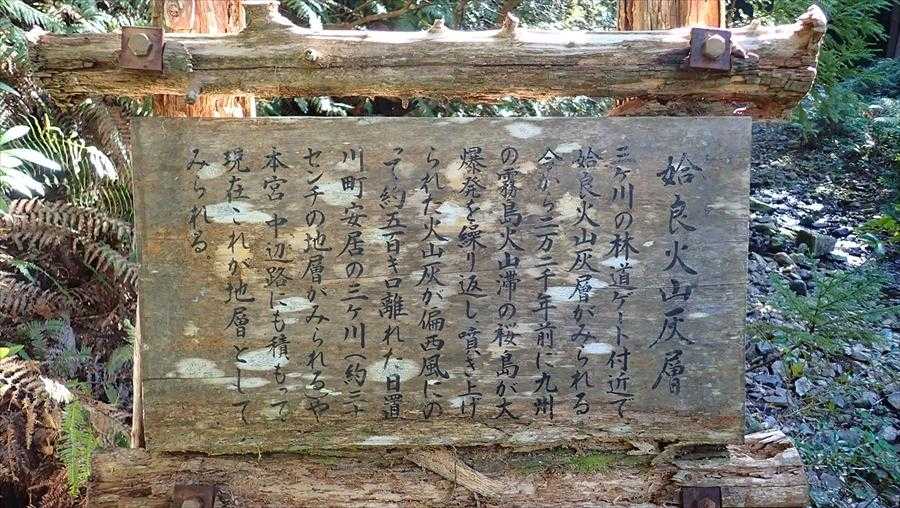 姶良火山灰層
三ヶ川の林道ゲート付近で
姶良火山灰層がみられる
今から二万二千年前に九州
の霧島火山滞の桜島が大
爆発を繰り返し噴き上げ
られた火山灰が偏西風にの
って約五百キロ離れた日置
川町安居の三ヶ川(約三十
センチの地層がみられる)や
本宮 中辺路にも積もって
現在これが地層として
みられる。